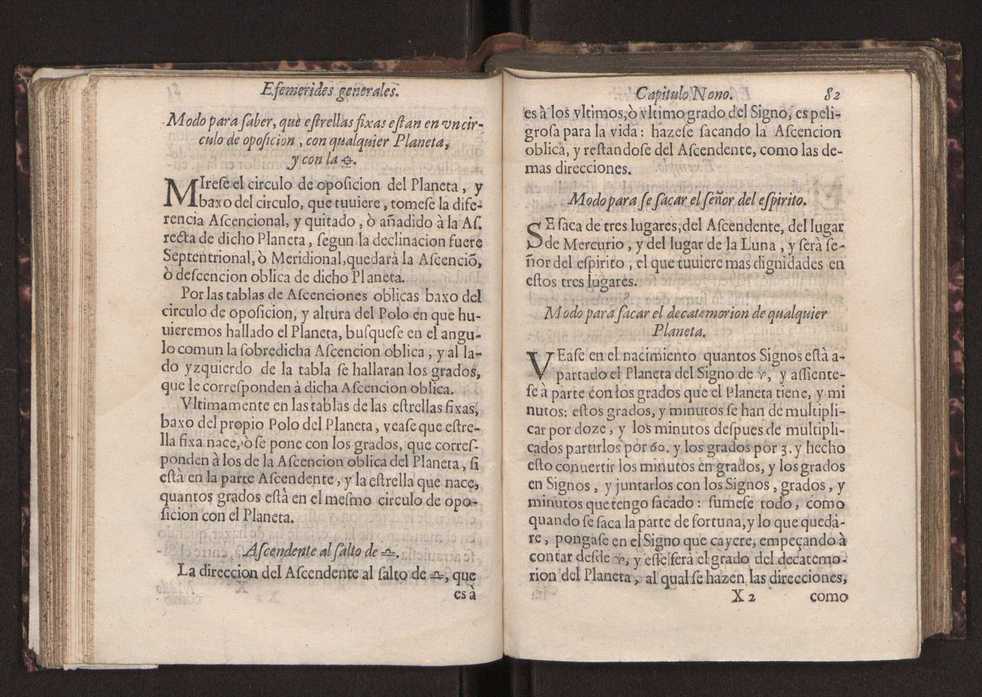 Efemerides generales.
Modo para saber, que estrellas fixas estan en vn cir-
culo de oposicion, con qualquier Planeta,
y con la ♎.
MIrese el circulo de oposicion del Planeta, y
baxo del circulo, que tuuiere, tomese la dife-
rencia Ascencional, y quitado, ò añadido à la As.
recta de dicho Planeta, segun la declinacion fuere
Septentrional, ò Meridional, quedarà la Ascenciõ,
ò descencion oblica de dicho Planeta.
Por las tablas de Ascenciones oblicas baxo del
circulo de oposicion, y altura del Polo en que hu-
uieremos hallado el Planeta, busquese en el angu-
lo comun la sobredicha Ascencion oblica, y al la-
do yzquierdo de la tabla se hallaran los grados,
que le corresponden à dicha Ascencion oblica.
Vltimamente en las tablas de las estrellas fixas,
baxo del propio Polo del Planeta, vease que estre-
lla fixa nace, ò se pone con los grados, que corres-
ponden à los de la Ascencion oblica del Planeta, si
està en la parte Ascendente, y la estrella que nace,
quantos grados està en el mesmo circulo de opo-
sicion con el Planeta.
Ascendente al salto de ♎.
La direccion del Ascendente al salto de ♎, que
es à
Capitulo Nono. 82
es à los vltimos, ò vltimo grado del Signo, es peli-
grosa para la vida: hazese sacando la Ascencion
oblica, y restandose del Ascendente, como las de-
mas direcciones.
Modo para se sacar el señor del espirito.
SE saca de tres lugares, del Ascendente, del lugar
de Mercurio, y del lugar de la Luna, y serà se-
ñor del espirito, el que tuuiere mas dignidades en
estos tres lugares.
Modo para sacar el decatemorion de qualquier
Planeta.
VEase en el nacimiento quantos Signos està a-
partado el Planeta del Signo de ♈, y assiente-
se à parte con los grados que el Planeta tiene, y mi
nutos: estos grados, y minutos se han de multipli-
car por doze, y los minutos despues de multipli-
cados partirlos por 60. y los grados por 3. y hecho
esto conuertir los minutos en grados, y los grados
en Signos, y juntarlos con los Signos, grados, y
minutos que tengo sacado: sumese todo, como
quando se saca la parte de fortuna, y lo que quedà-
re, pongase en el Signo que cayere, empeçando à
contar desde ♈, y este serà el grado del decatemo-
rion del Planeta, al qual se hazen las direcciones,
X 2 como